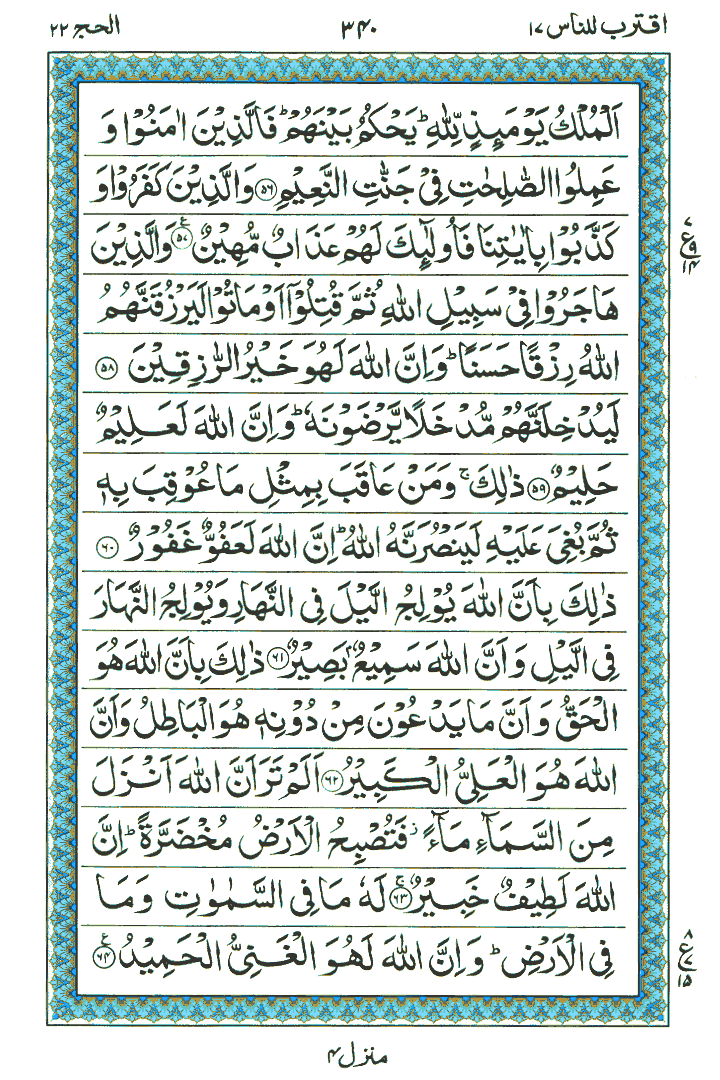 اقترب للناس ١٧
٣٤٠
الحج ٢٢
اَلْمُلْكُ يَوْمَىِٕذٍ لِّلّٰهِ ؕ يَحْكُمُ بَيْنَهُمْ ؕ فَالَّذِيْنَ اٰمَنُوْا وَ
عَمِلُوا الصّٰلِحٰتِ فِيْ جَنّٰتِ النَّعِيْمِ ﴿٥٦﴾ وَالَّذِيْنَ كَفَرُوْا وَ
كَذَّبُوْا بِاٰيٰتِنَا فَاُولٰٓىِٕكَ لَهُمْ عَذَابٌ مُّهِيْنٌ ﴿٥٧﴾ ع وَالَّذِيْنَ
هَاجَرُوْا فِيْ سَبِيْلِ اللّٰهِ ثُمَّ قُتِلُوْۤا اَوْ مَاتُوْا لَيَرْزُقَنَّهُمُ
اللّٰهُ رِزْقًا حَسَنًا ؕ وَاِنَّ اللّٰهَ لَهُوَ خَيْرُ الرّٰزِقِيْنَ ﴿٥٨﴾
لَيُدْخِلَنَّهُمْ مُّدْخَلًا يَّرْضَوْنَهٗ ؕ وَاِنَّ اللّٰهَ لَعَلِيْمٌ
حَلِيْمٌ ﴿٥٩﴾ ذٰلِكَ ۚ وَمَنْ عَاقَبَ بِمِثْلِ مَا عُوْقِبَ بِهٖ
ثُمَّ بُغِيَ عَلَيْهِ لَيَنْصُرَنَّهُ اللّٰهُ ؕ اِنَّ اللّٰهَ لَعَفُوٌّ غَفُوْرٌ ﴿٦٠﴾
ذٰلِكَ بِاَنَّ اللّٰهَ يُوْلِجُ الَّيْلَ فِي النَّهَارِ وَيُوْلِجُ النَّهَارَ
فِي الَّيْلِ وَاَنَّ اللّٰهَ سَمِيْعٌۢ بَصِيْرٌ ﴿٦١﴾ ذٰلِكَ بِاَنَّ اللّٰهَ هُوَ
الْحَقُّ وَاَنَّ مَا يَدْعُوْنَ مِنْ دُوْنِهٖ هُوَ الْبَاطِلُ وَاَنَّ
اللّٰهَ هُوَ الْعَلِيُّ الْكَبِيْرُ ﴿٦٢﴾ اَلَمْ تَرَ اَنَّ اللّٰهَ اَنْزَلَ
مِنَ السَّمَآءِ مَآءً ؗ فَتُصْبِحُ الْاَرْضُ مُخْضَرَّةً ؕ اِنَّ
اللّٰهَ لَطِيْفٌ خَبِيْرٌ ﴿٦٣﴾ ۚ لَهٗ مَا فِي السَّمٰوٰتِ وَمَا
فِي الْاَرْضِ ؕ وَاِنَّ اللّٰهَ لَهُوَ الْغَنِيُّ الْحَمِيْدُ ﴿٦٤﴾ ع
٧ ع ٩ ١٤
٨ ع ٧ ١٥
منزل ٤